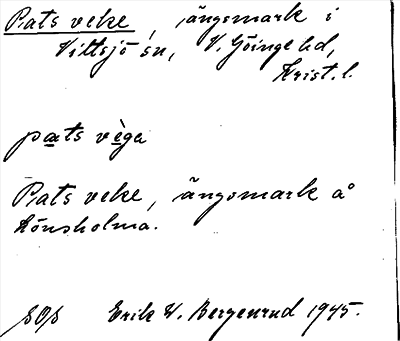 Pats veke, ängsmark i
Vittsjö sn, V. Göinge hd,
Krist. l.
pats vèga
Pats veke, ängsmark å
Lönsholma.
Erik V. Bergenrud 1945.